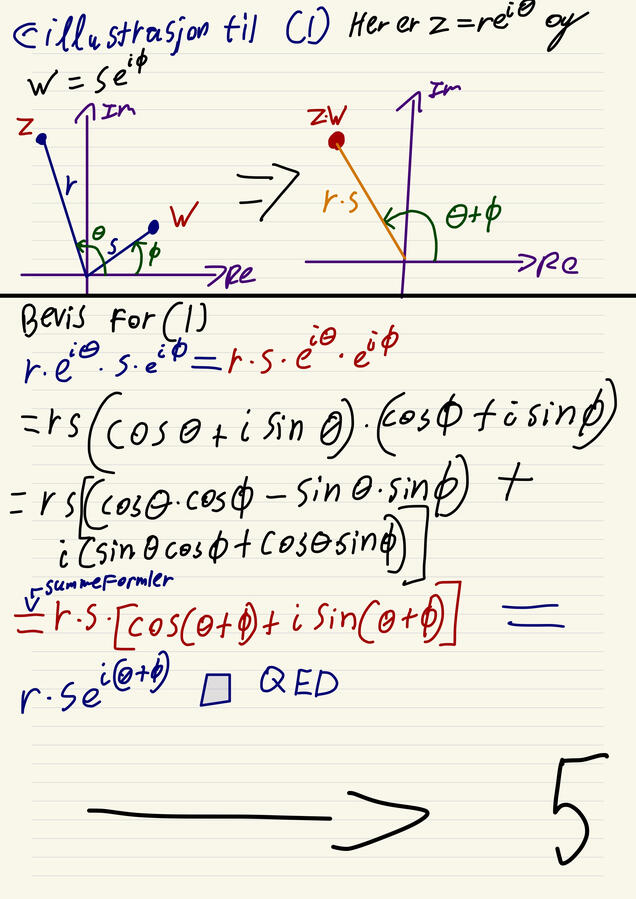 illustrasjon til (1) Her er z = re^{iθ} og
w = se^{iϕ}
Im
z
r
w
θ
s
ϕ
Re
⇒
Im
z·w
r·s
θ+ϕ
Re
Bevis for (1)
r·e^{iθ}·s·e^{iϕ} = r·s·e^{iθ}·e^{iϕ}
= rs(cosθ + i sin θ)·(cosϕ + i sinϕ)
= rs[(cosθ·cosϕ − sinθ·sinϕ) +
i(sinθcosϕ + cosθsinϕ)]
summeformler
= r·s·[cos(θ+ϕ) + i sin(θ+ϕ)] =
r·se^{i(θ+ϕ)} □ QED
→ 5